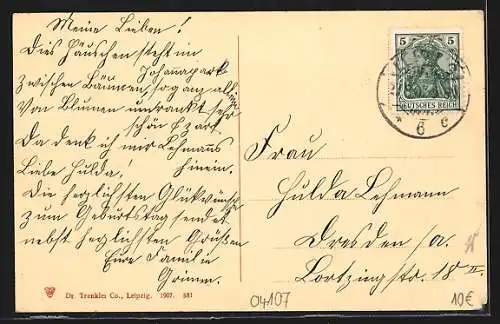 Meine Lieben!
Dies Häuschen steht im
Johannapark
zwischen Bäumen, so ganz allein
Von Blumen umrankt sehr
schön u. zart.
Da denk ich mir Lehmanns
hinein.
Liebe Hulda!
Die herzlichsten Glückwünsche
zum Geburtstag sendet
nebst herzlichsten Grüßen
Eure Familie
Grimm.
5 5
DEUTSCHES REICH
* 6 c
Frau
Hulda Lehmann
Dresden /a.
Lortzingstr. 18 II.
Dr. Trenkler Co., Leipzig. 1907. 581
04107
10€